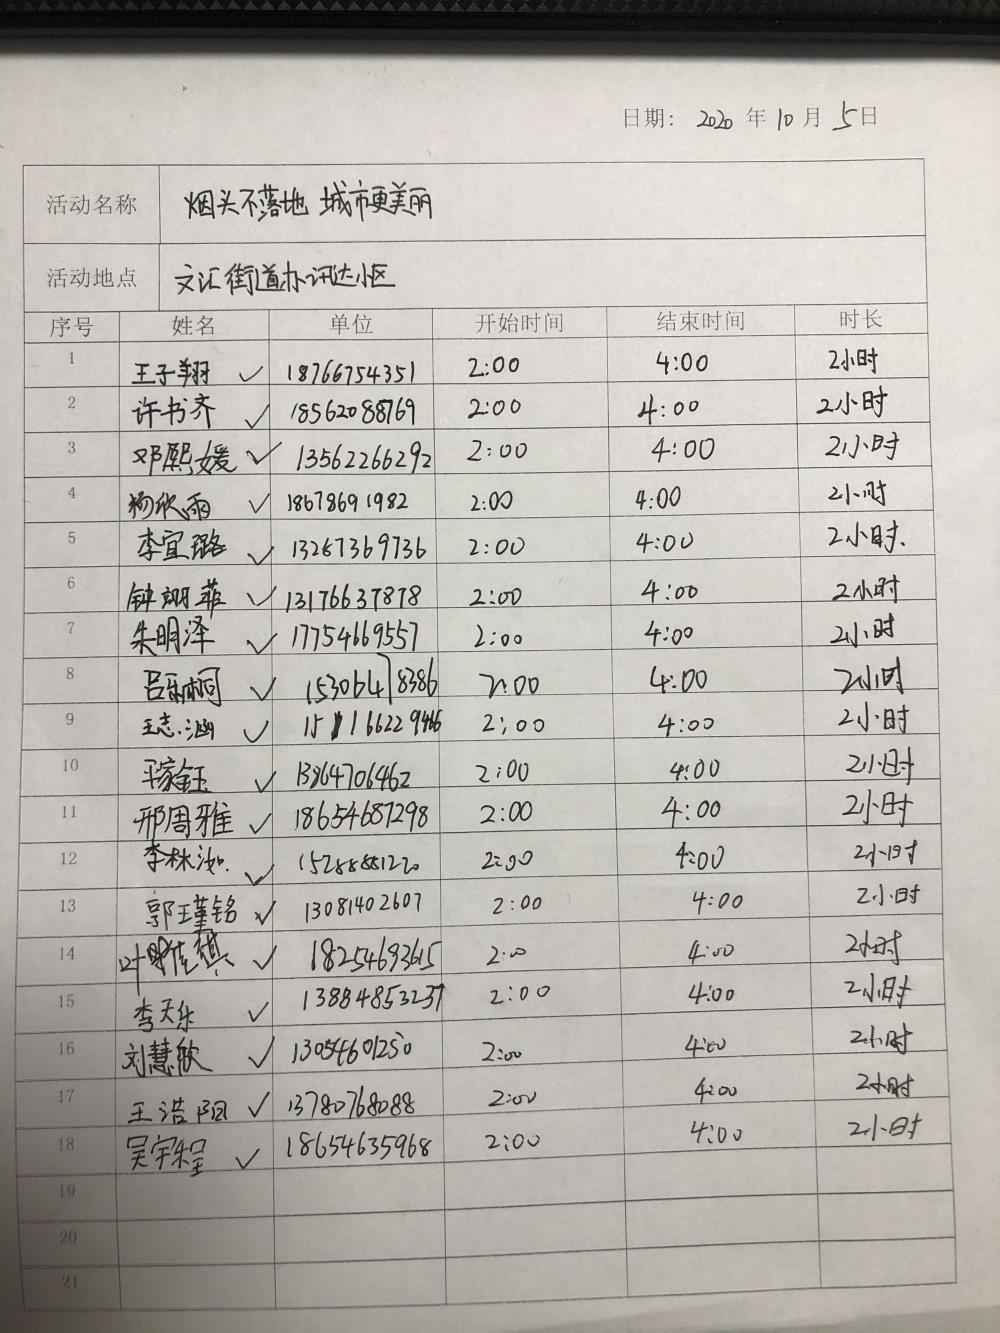 日期： 2020 年 10 月 5 日
活动名称 烟头不落地 城市更美丽
活动地点 文汇街道办讯达小区
序号 姓名 单位 开始时间 结束时间 时长
1 王子翔 ✓ 18766754351 2:00 4:00 2小时
2 许书齐 ✓ 18562088769 2:00 4:00 2小时
3 邓熙媛 ✓ 13562266292 2:00 4:00 2小时
4 杨欣雨 ✓ 18678691982 2:00 4:00 2小时
5 李宜璐 ✓ 13267369736 2:00 4:00 2小时.
6 钟翊菲 ✓ 13176637878 2:00 4:00 2小时
7 朱明泽 ✓ 17754669557 2:00 4:00 2小时
8 吕乐桐 ✓ 15306478386 2:00 4:00 2小时
9 王志涵 ✓ 2:00 4:00 2小时
10 ✓ 13864706462 2:00 4:00 2小时
11 邢周雅 ✓ 18654687298 2:00 4:00 2小时
12 李林汝 ✓ 15288881220 2:00 4:00 2小时
13 郭瑾铭 ✓ 13081402607 2:00 4:00 2小时
14 ✓ 18254693615 2:00 4:00 2小时
15 李天乐 ✓ 13884853237 2:00 4:00 2小时
16 刘慧欣 ✓ 13054601250 2:00 4:00 2小时
17 王浩阳 ✓ 13780768088 2:00 4:00 2小时
18 吴宇程 ✓ 18654635968 2:00 4:00 2小时
19
20
21